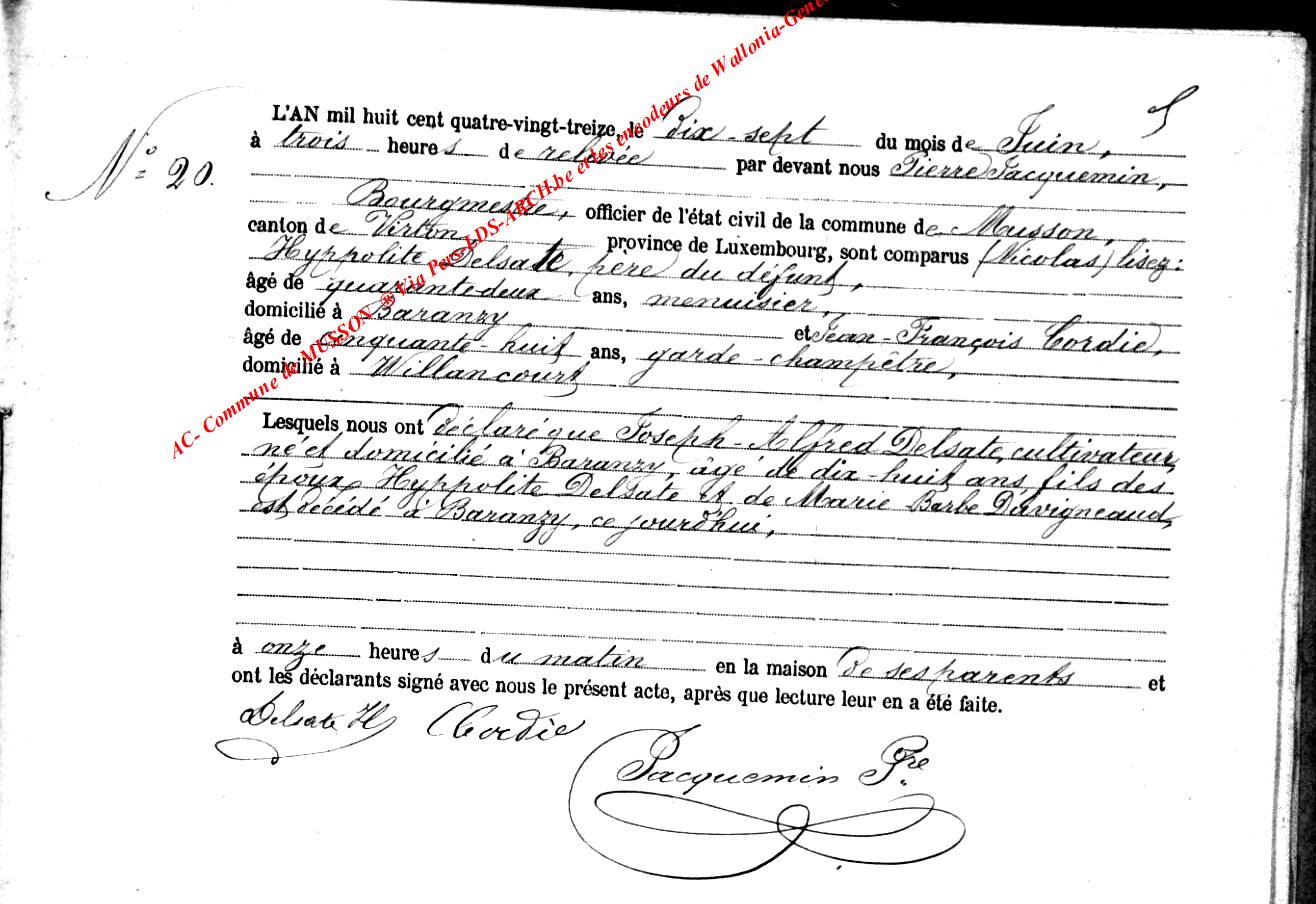 5
N° 20.
L'AN mil huit cent quatre-vingt-treize, le Dix-sept du mois de Juin,
à trois heures de relevée par devant nous Pierre Jacquemin,
Bourgmestre, officier de l'état civil de la commune de Musson,
canton de Virton province de Luxembourg, sont comparus (Nicolas) lisez:
Hyppolite Delsate, père du défunt,
âgé de quarante-deux ans, menuisier,
domicilié à Baranzy et Jean-François Cordie,
âgé de cinquante-huit ans, garde-champêtre,
domicilié à Willancourt
Lesquels nous ont déclaré que Joseph-Alfred Delsate, cultivateur,
né et domicilié à Baranzy, âgé de dix-huit ans, fils des
époux Hyppolite Delsate et de Marie Barbe Davigneaud,
est décédé à Baranzy, ce jourd'hui,
à onze heures du matin en la maison de ses parents et
ont les déclarants signé avec nous le présent acte, après que lecture leur en a été faite.
Delsate H Cordie
Jacquemin Pre
AC- Commune de MUSSON ® Via Pers LDS-ARCH.be et les encodeurs de Wallonia-Gene